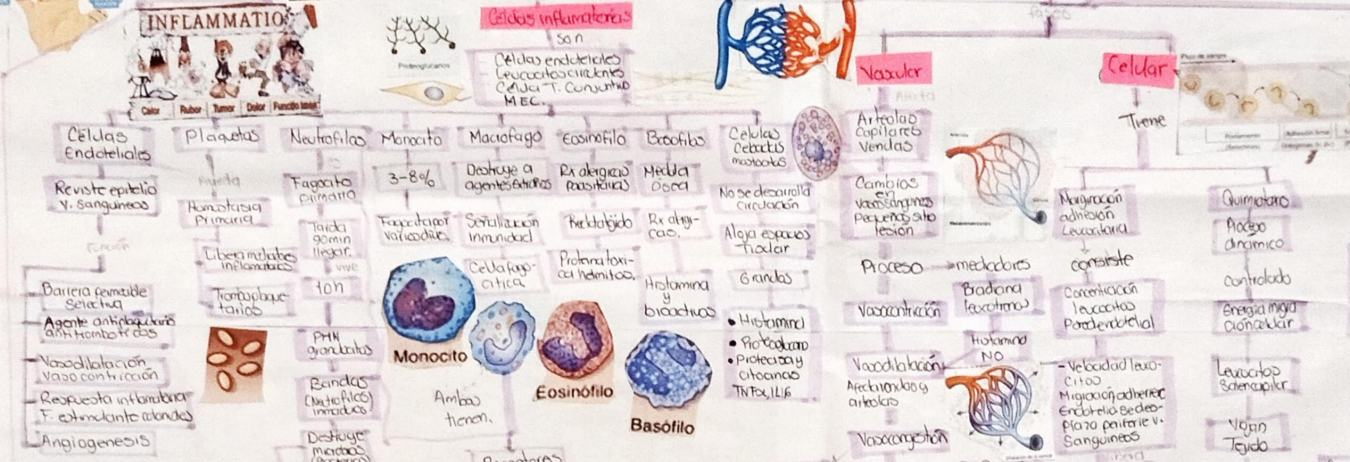 INFLAMMATIO
Calor Rubor Tumor Dolor
Proteoglucanos
Células inflamatorias
son
Células endoteliales
Leucocitos circulantes
Célula T. Conjuntivo
MEC.
fases
Vascular
Celular
Tiene
Células
Endoteliales
Reviste epitelio
V. sanguineos
función
Barrera permeable
Selectiva
Agente antiplaquetario
antitromboticos
Vasodilatación
Vaso contricción
Respuesta inflamatoria
F. estimulante colonides
Angiogenesis
Plaquetas
Homostasia
Primaria
Libera mediadores
inflamatorios
Neutrofilos
Fagocito
primario
Tarda
90min
llegar.
vive
10h
PMN
granulocitos
Bandas
(Neutrofilos
inmaduros)
Destruye
microbios
Monocito
3-8%
Macrofago
Destruye a
agentes extraños
Señalización
inmunidad
Celula fago-
citica
Eosinofilo
Rx alergicas
parasitarias
Basofilo
Medula
Osea
Rx alergi-
cas.
Histamina
y
bioactivos
Celulas
Cebadas
mastocitos
No se desarrolla
circulación
Aloja espacios
Tisular
Granulos
• Histamina
• Proteoglucano
• Proteasa y
citocinas
TNFα, IL16
Monocito
Eosinófilo
Basófilo
Ambos
tienen.
Receptores
Arteolas
Capilares
Venulas
Cambios
en
vasos sanguineos
pequeños sitio
lesión
Proceso
mediadores
Vasocontricción
Bradicina
leucotrienos
Histamina
NO
Vasodilatación
Vasocongestión
Marginación
adhesión
Leucocitaria
consiste
Concentración
leucocitos
Pared endotelial
- Velocidad leuco-
citos
Migración adherirse
Endotelio se des-
plaza periferie v.
Sanguineos
Quimiotaxo
Proceso
dinamico
controlado
Energia migra
ción celular
Leucocitos
Salen capilar
Viajan
Tejido